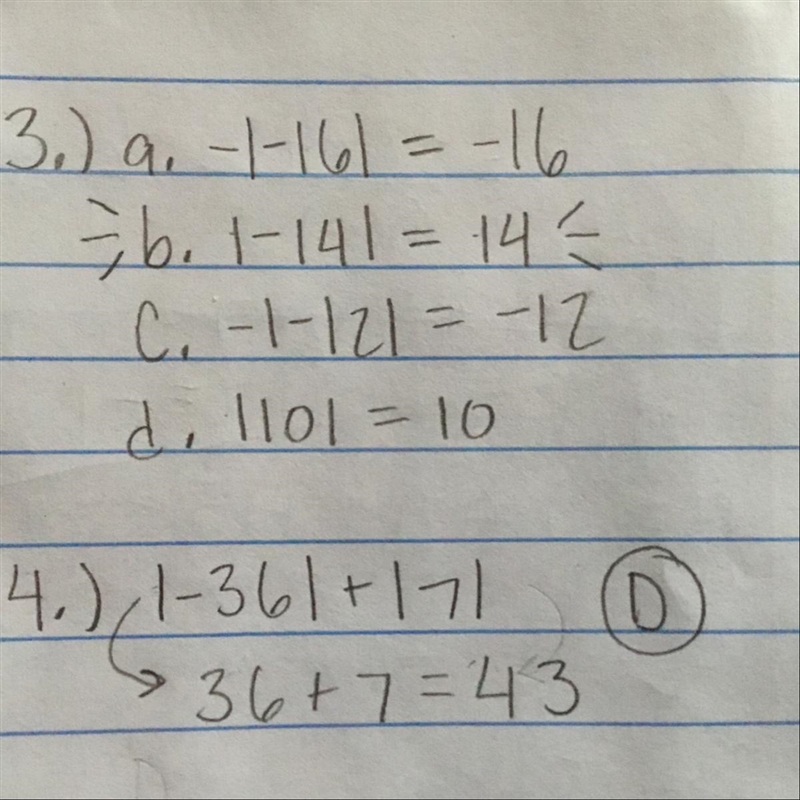 3.) a. -|-16| = -16
b. |-14| = 14
c. -|-12| = -12
d. |10| = 10
4.) |-36| + |7| D
36 + 7 = 43